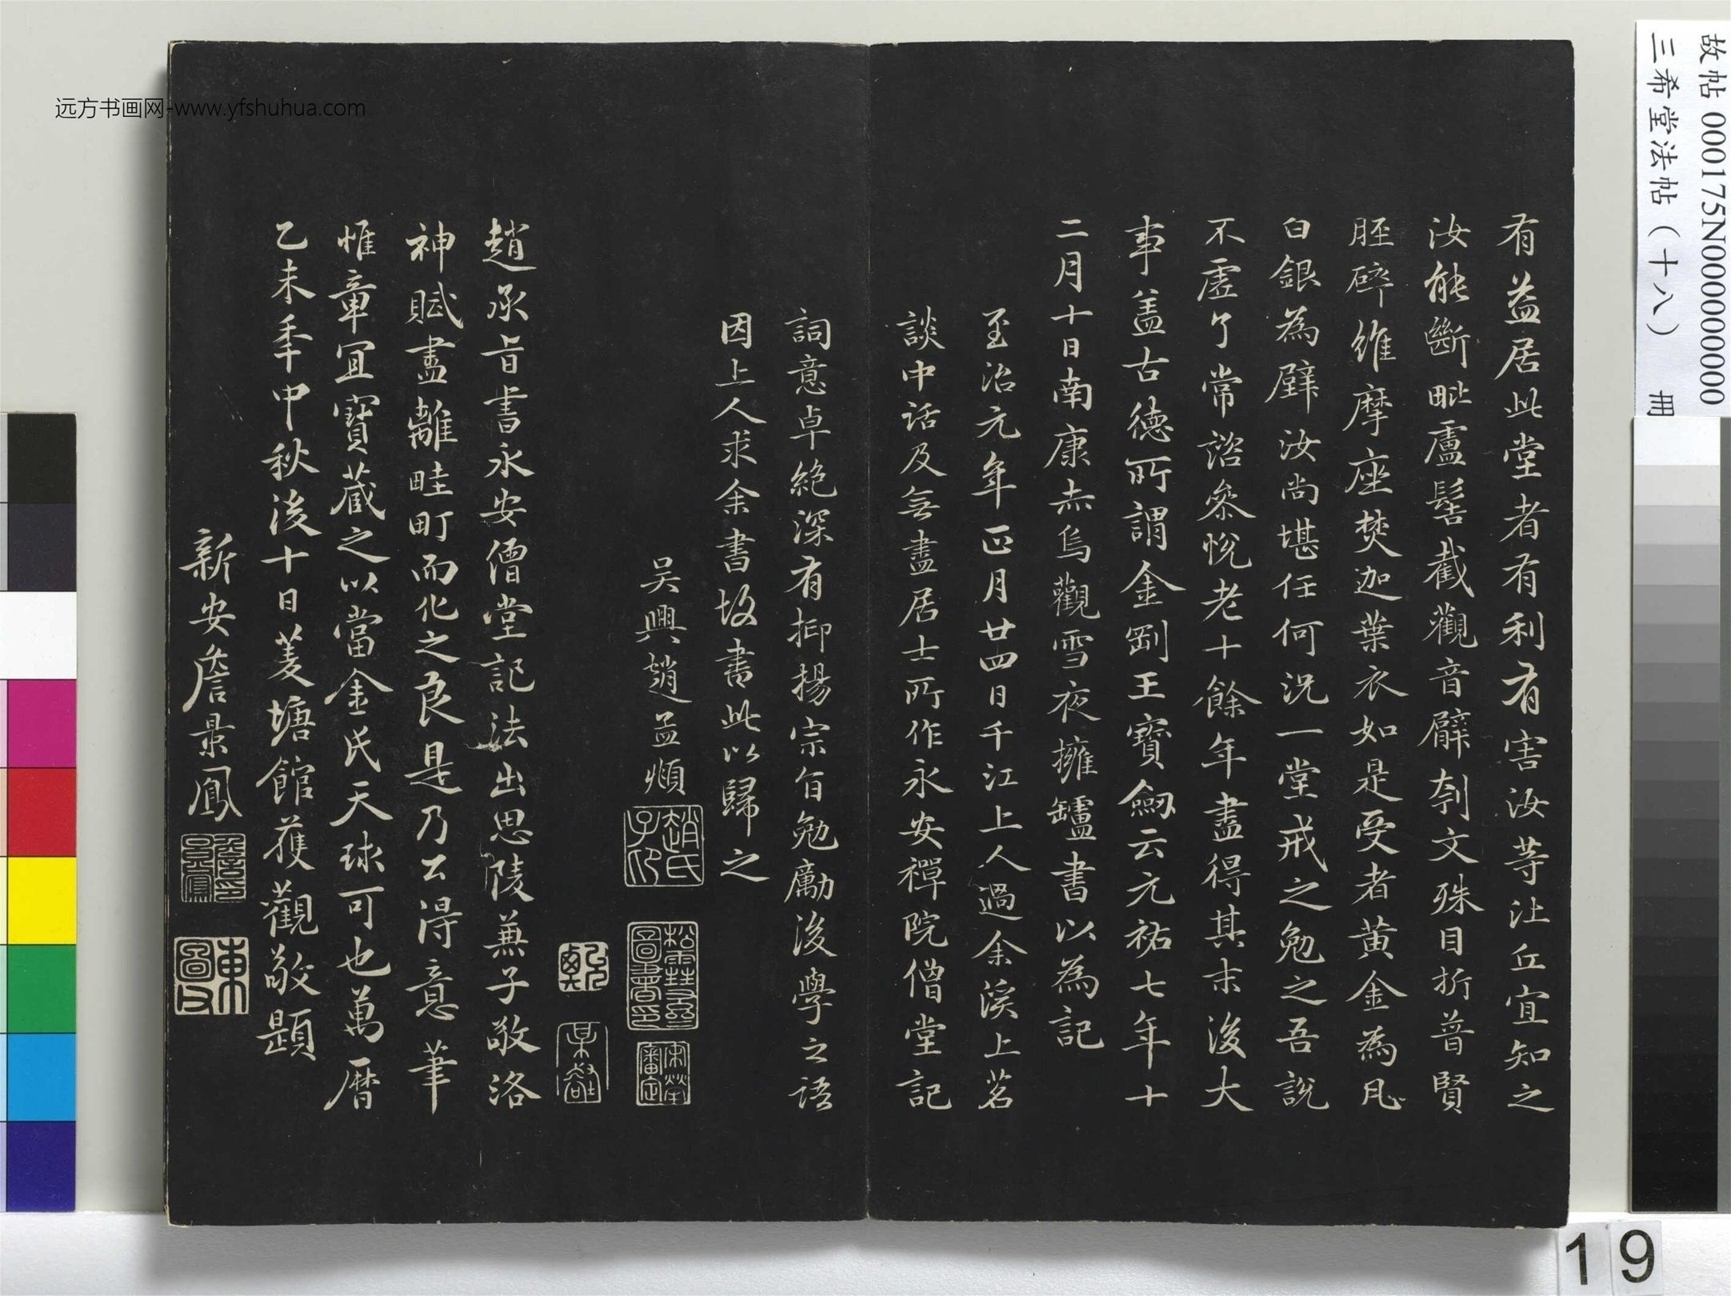 有益居此堂者有利有害汝等比丘宜知之
汝能斷毗盧髻截觀音臂刳文殊目折普賢
脛碎維摩座焚迦葉衣如是受者黄金為凡
白銀為壁汝尚堪任何況一堂戒之勉之吾說
不虛了常諮參悅老十餘年盡得其末後大
事盖古德所謂金剛王寶劒云元祐七年十
二月十日南康赤烏觀雪夜擁罏書以為記
至治元年正月廿四日千江上人過余溪上茗
談中話及無盡居士所作永安禪院僧堂記
詞意卓絶深有抑揚宗旨勉勵後學之語
因上人求余書故書此以歸之
吴興趙孟頫
趙氏子卬
趙承旨書永安僧堂記法出思陵兼子敬洛
神賦盡離畦町而化之良是乃公得意筆
惟章宜寶蔵之以當金氏天球可也萬曆
乙未季中秋後十日菱塘館獲觀敬題
新安詹景鳳
東圖
故帖 000175N000000000
三希堂法帖（十八） 冊
19
远方书画网-www.yfshuhua.com